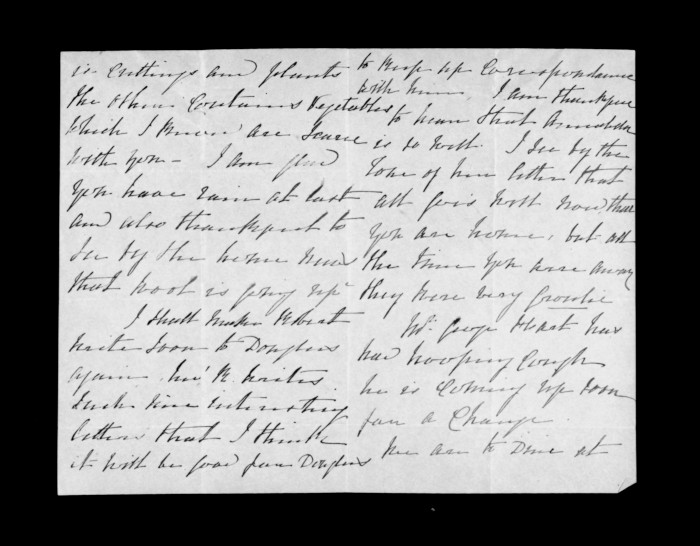 is cuttings and plants
the other contains vegetables
which I know are scarce
with you - I am glad
you have rain at last
and also thankful to
see by the home news
that wool is going up
I shall make Robert
write soon to Douglas
again. he writes
such nice interesting
letters that I think
it will be good for Douglas
to keep up correspondance
with him I am thankful
to hear that
is so well. I see by the
tone of her letter that
all goes well now, that
you are home, but all
the time you were away
they were very
Mr. George Hart has
had hooping cough
he is coming up soon
for a change.
We are to dine at